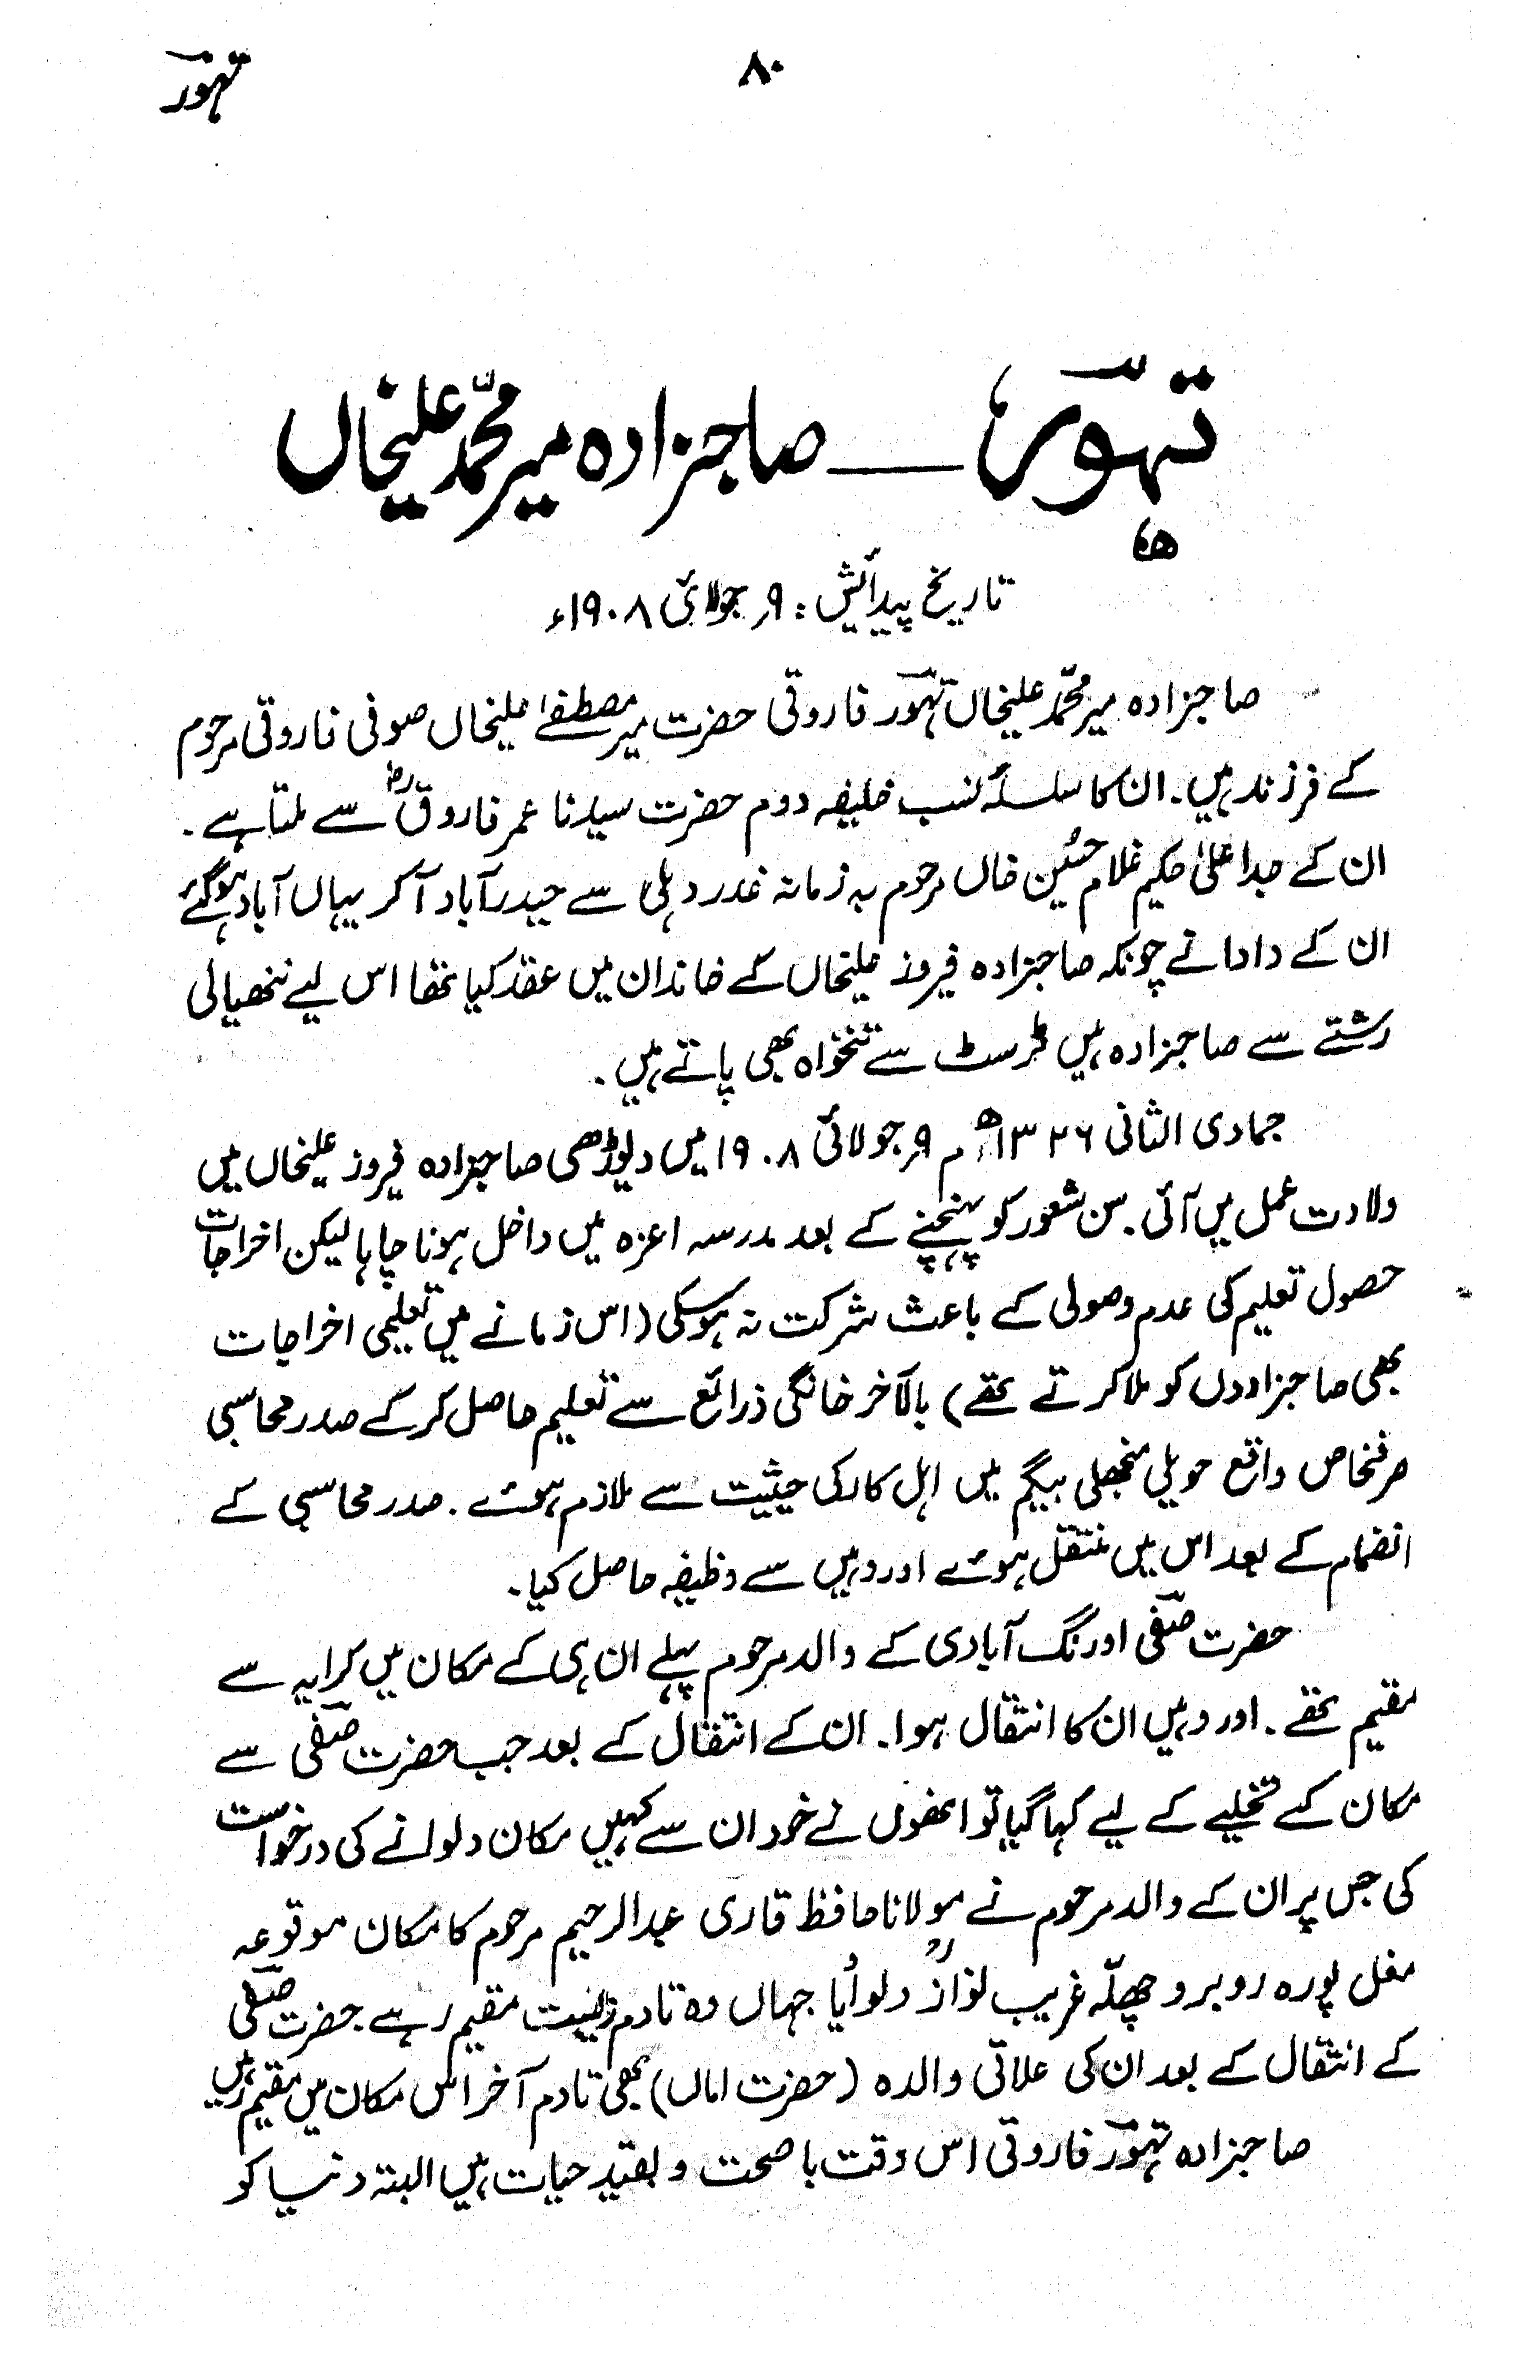 ۸۰
تہور
تہوّر ــــ صاجزادہ میر محمّد علیخاں
تاریخ پیدائش : ۹؍ جولائی ۱۹۰۸ء
صاجزادہ میر محمّد علیخاں تہوّر فاروقی حضرت میر مصطفےٰ علیخاں صوفی فاروقی مرحوم
کے فرزند ہیں۔ ان کا سلسلۂ نسب خلیفہ دوم حضرت سیدنا عمر فاروقؓ سے ملتا ہے۔
ان کے جد اعلیٰ حکیم غلام حسُین خاں مرحوم بہ زمانہ غدر دہلی سے حیدرآباد آ کر یہاں آباد ہو گئے
ان کے دادا نے چونکہ صاجزادہ فیروز علیخاں کے خاندان میں عقد کیا تھا اس لیے ننھیالی
رشتے سے صاجزادہ ہیں ٹرسٹ سے تنخواہ بھی پاتے ہیں۔
جمادی الثانی ۱۳۲۶ھ م ۹؍ جولائی ۱۹۰۸ میں دیوڑھی صاجزادہ فیروز علیخاں میں
ولادت عمل میں آئی۔ سن شعور کو پہنچنے کے بعد مدرسہ اعزہ میں داخل ہونا چاہا لیکن اخراجات
حصول تعلیم کی عدم وصولی کے باعث شرکت نہ ہوسکی (اس زمانے میں تعلیمی اخراجات
بھی صاجزادوں کو ملا کرتے تھے) بالآخر خانگی ذرائع سے تعلیم حاصل کر کے صدر محاسبی
صرفخاص واقع حویلی منجھلی بیگم میں اہل کار کی حیثیت سے ملازم ہوئے۔ صدر محاسبی کے
انضمام کے بعد اس میں منتقل ہوئے اور وہیں سے وظیفہ حاصل کیا۔
حضرت صفیؔ اورنگ آبادی کے والد مرحوم پہلے ان ہی کے مکان میں کرایہ سے
مقیم تھے۔ اور وہیں ان کا انتقال ہوا۔ ان کے انتقال کے بعد جب حضرت صفیؔ سے
مکان کے تخلیے کے لیے کہا گیا تو انھوں نے خود ان سے کہیں مکان دلوانے کی درخواست
کی جس پر ان کے والد مرحوم نے مولانا حافظ قاری عبدالرحیم مرحوم کا مکان موقوعہ
مغل پورہ روبرو چھلّہ غریب نوازؒ دلوایا جہاں وہ تادم زیست مقیم رہے حضرت صفیؔ
کے انتقال کے بعد ان کی علاتی والدہ (حضرت اماں) بھی تادم آخر اس مکان میں مقیم رہیں
صاجزادہ تہوّر فاروقی اس وقت با صحت و بقید حیات ہیں البتہ دنیا کو